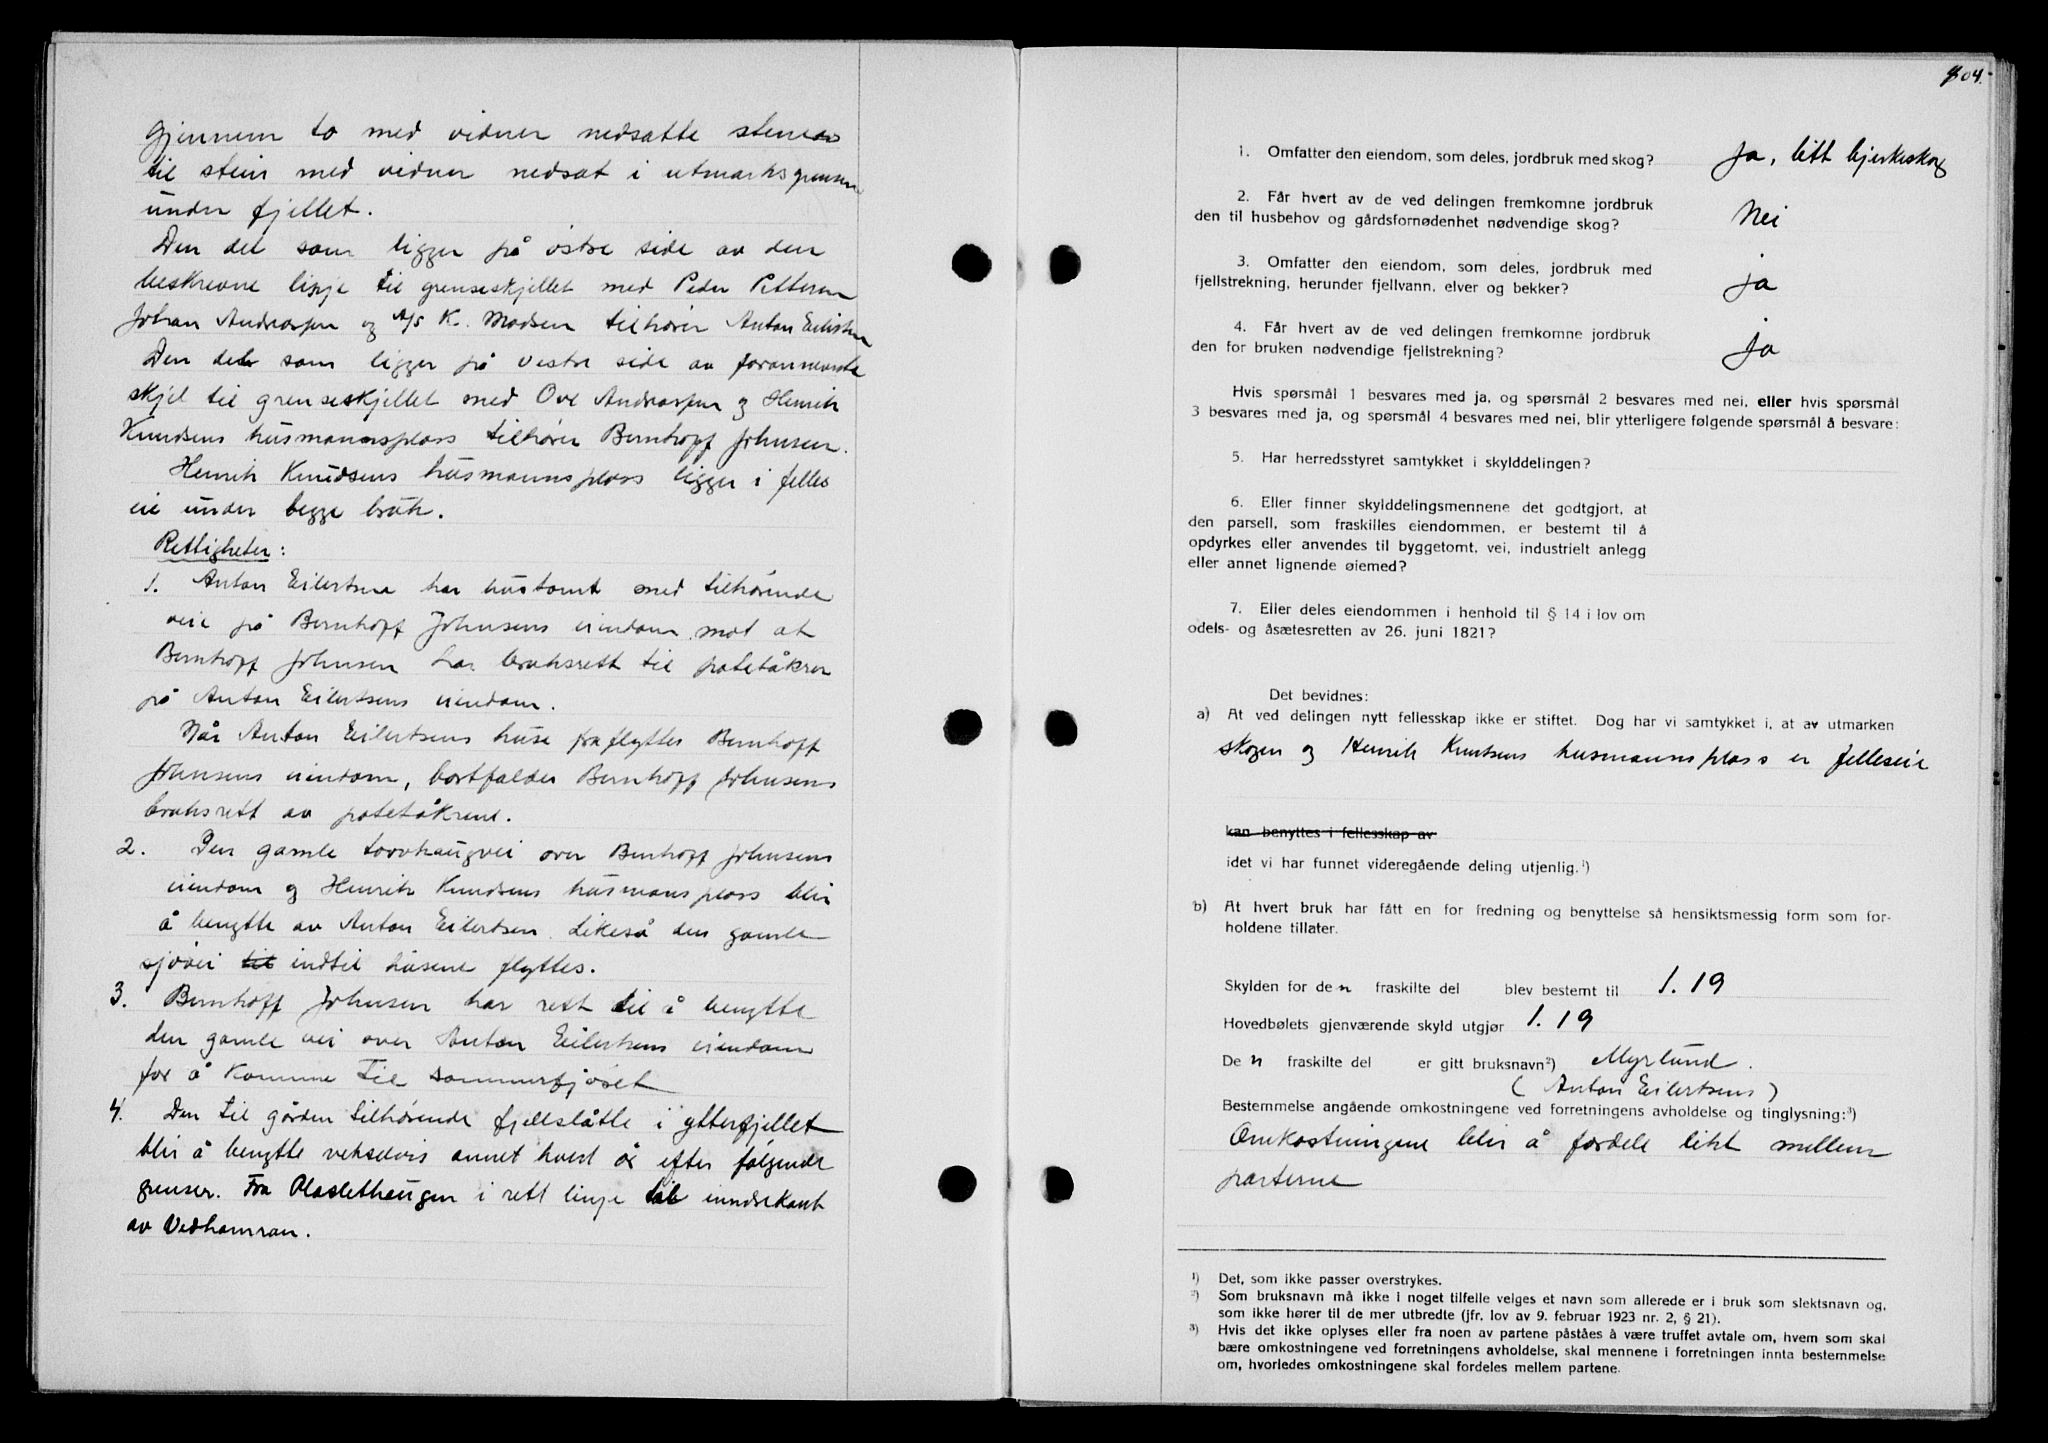 gjennem to med vidner nedsatte stener
til stein med vidner nedsat i utmarksgrensen
under fjellet.
Den del som ligger på østre side av den
beskrevne linje til grenseskjellet med Peder Pettersen
Johan Andreassen og A/S K. Madsen tilhører Anton Eilertsen
Den del som ligger på vestre side av forannevnte
skjel til grenseskjellet med Ove Andreassen og Henrik
Knudsens husmannsplass tilhører Bernhoff Johnsen.
Henrik Knudsens husmannsplass ligger i felles
eie under begge bruk.
Rettigheter:
1. Anton Eilertsen har hustomt med tilhørende
veie på Bernhoff Johnsens eiendom mot at
Bernhoff Johnsen har bruksrett til potetåkrer
på Anton Eilertsens eiendom.
Når Anton Eilertsens huse fraflyttes Bernhoff
Johnsens eiendom, bortfalder Bernhoff Johnsens
bruksrett av potetåkrene.
2. Den gamle torvhaugvei over Bernhoff Johnsens
eiendom og Henrik Knudsens husmansplass blir
å benytte av Anton Eilertsen. Likeså den gamle
sjøvei til indtil husene flyttes.
3. Bernhoff Johnsen har rett til å benytte
den gamle vei over Anton Eilertsens eiendom
for å komme til sommerfjøset
4. Den til gården tilhørende fjellslåtte i ytterfjellet
blir å benytte vekselvis annet hvert år efter følgende
grenser. Fra Plasslethaugen i rett linje til inndsekant
av Vedhamran.
404.
1. Omfatter den eiendom, som deles, jordbruk med skog? Ja, litt bjerkeskog
2. Får hvert av de ved delingen fremkomne jordbruk
den til husbehov og gårdsfornødenhet nødvendige skog? Nei
3. Omfatter den eiendom, som deles, jordbruk med
fjellstrekning, herunder fjellvann, elver og bekker? ja
4. Får hvert av de ved delingen fremkomne jordbruk
den for bruken nødvendige fjellstrekning? ja
Hvis spørsmål 1 besvares med ja, og spørsmål 2 besvares med nei, eller hvis spørsmål
3 besvares med ja, og spørsmål 4 besvares med nei, blir ytterligere følgende spørsmål å besvare:
5. Har herredsstyret samtykket i skylddelingen?
6. Eller finner skylddelingsmennene det godtgjort, at
den parsell, som fraskilles eiendommen, er bestemt til å
opdyrkes eller anvendes til byggetomt, vei, industrielt anlegg
eller annet lignende øiemed?
7. Eller deles eiendommen i henhold til § 14 i lov om
odels- og åsætesretten av 26. juni 1821?
Det bevidnes:
a) At ved delingen nytt fellesskap ikke er stiftet. Dog har vi samtykket i, at av utmarken
skogen og Henrik Knutsens husmannsplass er felleseie
kan benyttes i fellesskap av
idet vi har funnet videregående deling utjenlig.¹)
b) At hvert bruk har fått en for fredning og benyttelse så hensiktsmessig form som for-
holdene tillater.
Skylden for den fraskilte del blev bestemt til 1.19
Hovedbølets gjenværende skyld utgjør 1.19
Den fraskilte del er gitt bruksnavn²) Myrlund.
(Anton Eilertsens)
Bestemmelse angående omkostningene ved forretningens avholdelse og tinglysning:³)
Omkostningene blir å fordele likt mellem
parterne
¹) Det, som ikke passer overstrykes.
²) Som bruksnavn må ikke i noget tilfelle velges et navn som allerede er i bruk som slektsnavn og,
som ikke hører til de mer utbredte (jfr. lov av 9. februar 1923 nr. 2, § 21).
³) Hvis det ikke oplyses eller fra noen av partene påståes å være truffet avtale om, hvem som skal
bære omkostningene ved forretningens avholdelse, skal mennene i forretningen innta bestemmelse
om, hvorledes omkostningene skal fordeles mellem partene.